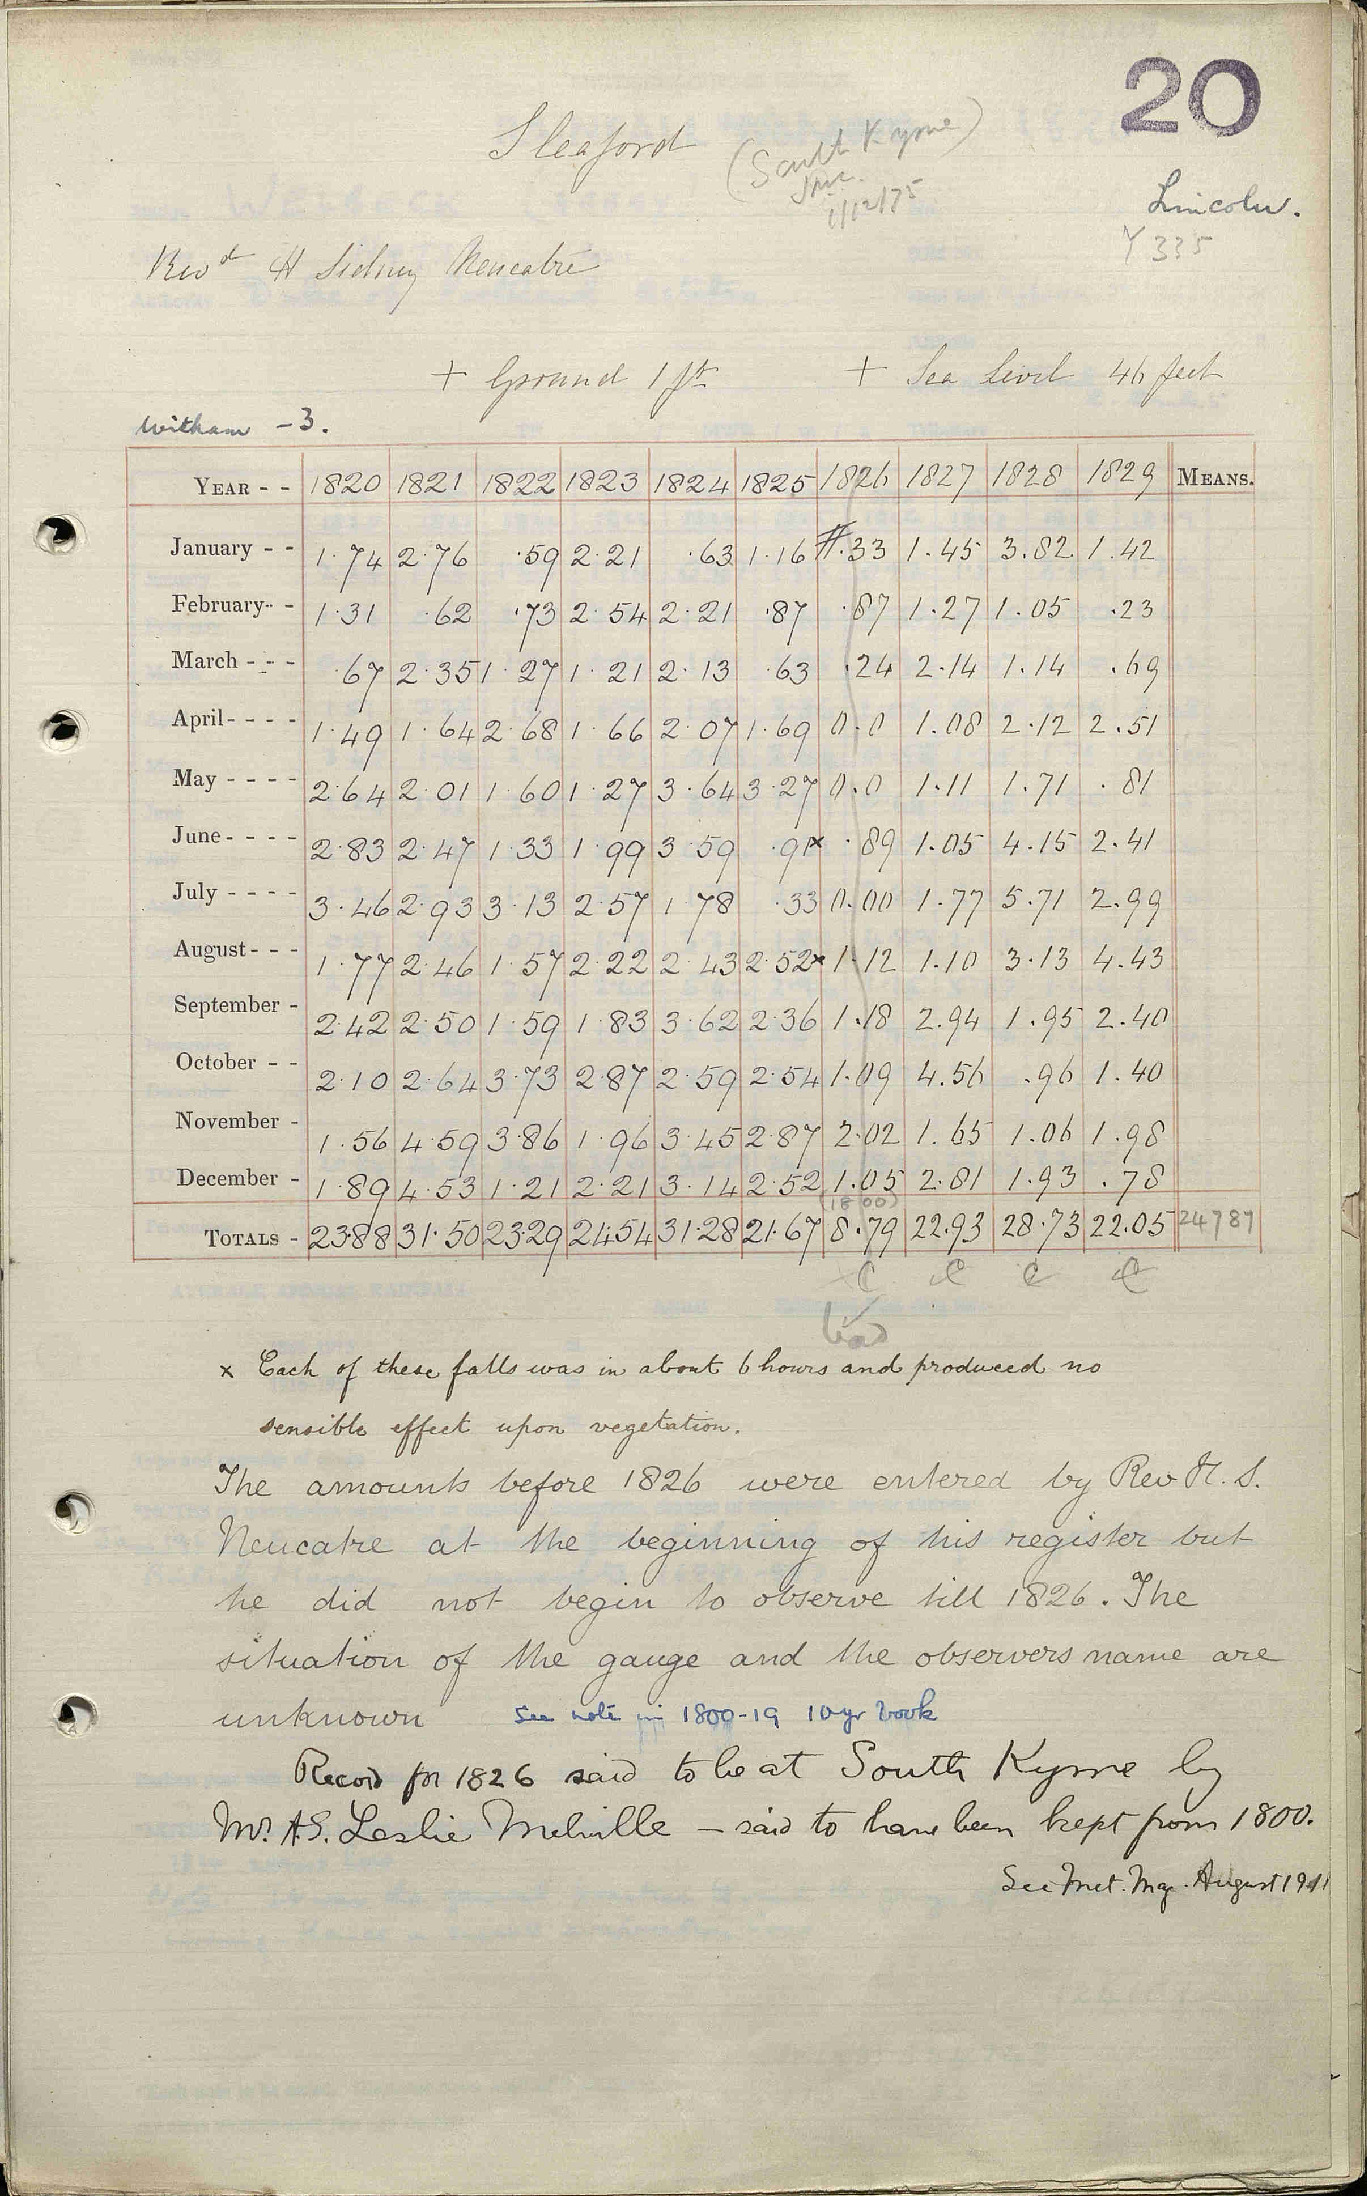 20
Sleaford (South Kyme)
1/12/75
Lincoln.
Y 335
Revd H Sidney Neucatre
+ Ground 1 ft + Sea Level 46 feet
Witham - 3.
YEAR - - 1820 1821 1822 1823 1824 1825 1826 1827 1828 1829 MEANS.
January - - 1.74 2.76 .59 2.21 .63 1.16 #.33 1.45 3.82 1.42
February - - 1.31 .62 .73 2.54 2.21 .87 .87 1.27 1.05 .23
March - - - .67 2.35 1.27 1.21 2.13 .63 .24 2.14 1.14 .69
April - - - - 1.49 1.64 2.68 1.66 2.07 1.69 0.0 1.08 2.12 2.51
May - - - - 2.64 2.01 1.60 1.27 3.64 3.27 0.0 1.11 1.71 .81
June - - - - 2.83 2.47 1.33 1.99 3.59 .91 x .89 1.05 4.15 2.41
July - - - - 3.46 2.93 3.13 2.57 1.78 .33 0.00 1.77 5.71 2.99
August - - - 1.77 2.46 1.57 2.22 2.43 2.52 x 1.12 1.10 3.13 4.43
September - 2.42 2.50 1.59 1.83 3.62 2.36 1.18 2.94 1.95 2.40
October - - 2.10 2.64 3.73 2.87 2.59 2.54 1.09 4.56 .96 1.40
November - 1.56 4.59 3.86 1.96 3.45 2.87 2.02 1.65 1.06 1.98
December - 1.89 4.53 1.21 2.21 3.14 2.52 1.05 2.81 1.93 .78
(18 00)
TOTALS - 23.88 31.50 23.29 24.54 31.28 21.67 8.79 22.93 28.73 22.05 24787
C C C C
bad
x Each of these falls was in about 6 hours and produced no
sensible effect upon vegetation.
The amounts before 1826 were entered by Rev H. S.
Neucatre at the beginning of his register but
he did not begin to observe till 1826. The
situation of the gauge and the observers name are
unknown see note in 1800-19 10yr book
Record for 1826 said to be at South Kyme by
Mr. A.S. Leslie Melville - said to have been kept from 1800.
See Met. Mag. August 1911